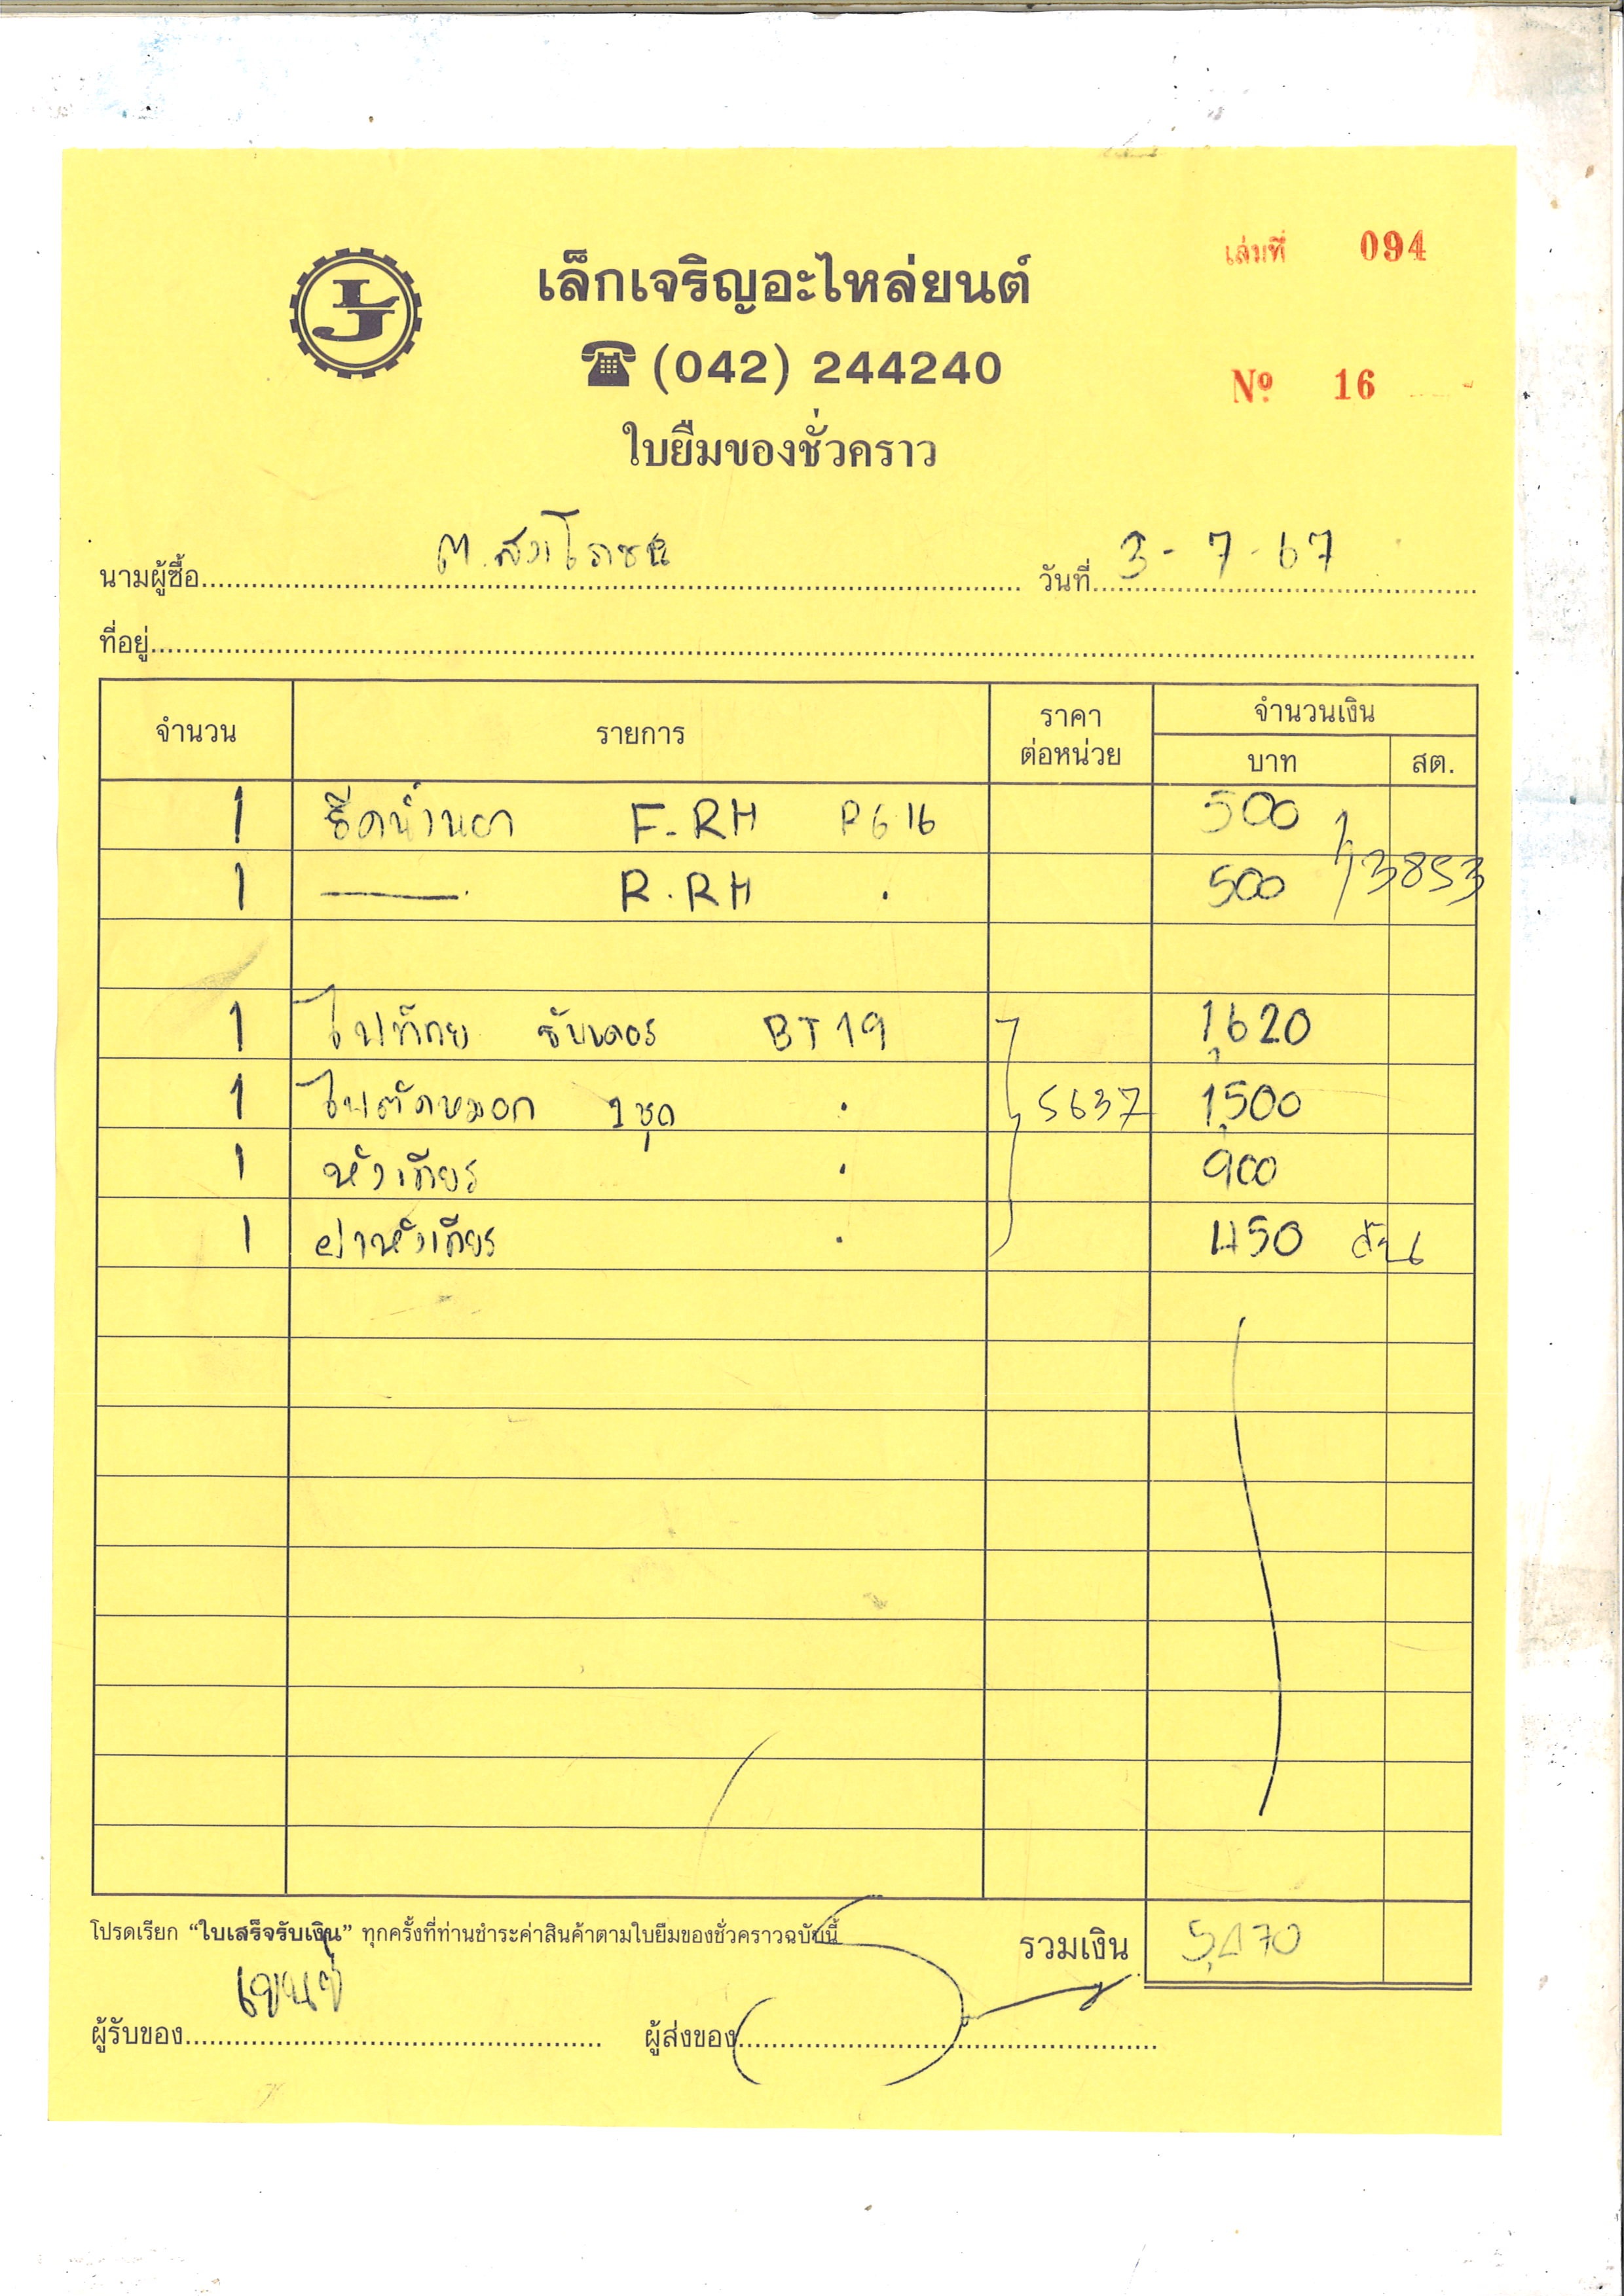 เล่มที่ 094
เล็กเจริญอะไหล่ยนต์
(042) 244240
Nº 16
ใบยืมของชั่วคราว
นามผู้ซื้อ วันที่ 3-7-67
ที่อยู่
จำนวน รายการ ราคาต่อหน่วย จำนวนเงิน
บาท สต.
1 F-RH P616 500
1 R.RH 500 3853
1 ไฟท้าย BT19 1,620
1 ไฟตัดหมอก 1ชุด 5637 1,500
1 หัวเทียน 900
1 450
โปรดเรียก “ใบเสร็จรับเงิน” ทุกครั้งที่ท่านชำระค่าสินค้าตามใบยืมของชั่วคราวฉบับนี้
รวมเงิน 5,470
ผู้รับของ ผู้ส่งของ